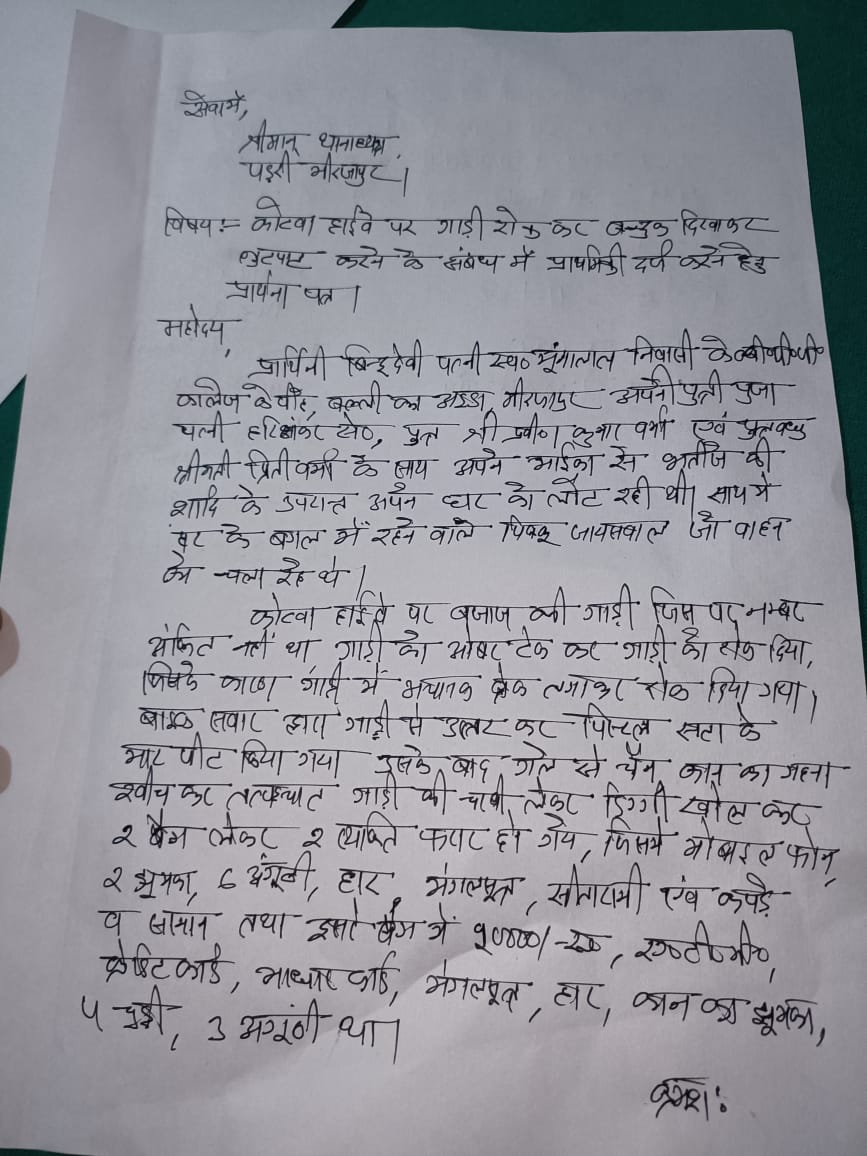 सेवामें,
श्रीमान् थानाध्यक्ष,
पड़री मीरजापुर।
विषय:- कोटवा हाईवे पर गाड़ी रोक कर बन्दुक दिखाकर
लुटपाट करने के संबंध में प्राथमिकी दर्ज करने हेतु
प्रार्थना पत्र।
महोदय,
प्रार्थिनी बिन्दुदेवी पत्नी स्व० मूंगालाल निवासी के०बी०पी०जी०
कालेज के पीछे, बल्ली का अड्डा, मीरजापुर अपनी पुत्री पुजा
पत्नी हरिशंकर सेठ, पुत्र श्री प्रवीण कुमार वर्मा एवं पुत्रवधु
श्रीमती प्रिती वर्मा के साथ अपने माईका से भतीजे की
शादि के उपरान्त अपने घर को लौट रही थी। साथ में
घर के बगल में रहने वाले पिक्कू जायसवाल जो वाहन
को चला रहे थे।
कोटवा हाईवे पर बजाज की गाड़ी जिस पर नम्बर
अंकित नहीं था गाड़ी को ओभर टेक कर गाड़ी को रोक दिया,
जिसके कारण गाड़ी में अचानक ब्रेक लगाकर रोक दिया गया।
बाइक सवार द्वारा गाड़ी से उतर कर पिस्टल सटा के
मार पीट किया गया उसके बाद गले से चैन, कान का गहना
खीच कर तत्पश्चात गाड़ी की चाबी लेकर डिग्गी खोल कर
२ बैग लेकर २ व्यक्ति फरार हो गये, जिसमे मोबाइल फोन,
२ झुमका, 6 अंगूठी, हार, मंगलसूत्र, सीतारामी एंव कपड़े
व सामान तथा दुसरे बैग में /-रु०, ए०टी०एम०,
क्रेडिट कार्ड, आधार कार्ड, मंगलसूत्र, हार, कान का झूमका,
५ चुड़ी, 3 अगूंठी था।
क्रमश: